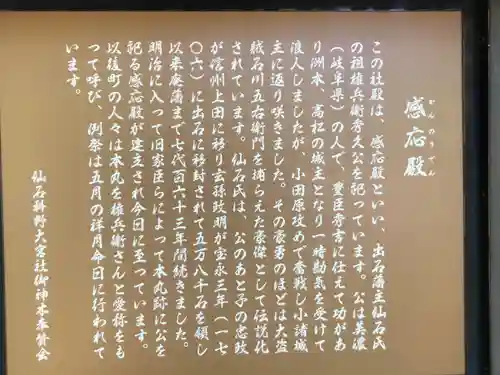 かんのうでん
感応殿
この社殿は、感応殿といい、出石藩主仙石氏
の祖権兵衛秀久公を祀っています。公は美濃
(岐阜県)の人で、豊臣秀吉に仕えて功があ
り洲本、高松の城主となり一時勘気を受けて
浪人しましたが、小田原攻めで奮戦し小諸城
主に返り咲きました。その豪勇のほどは大盗
賊石川五右衛門を捕らえた豪傑として伝説化
されています。仙石氏は、公のあと子の忠政
が信州上田に移り玄孫政明が宝永三年(一七
〇六)に出石に移封されて五万八千石を領し
以来廃藩まで七代百六十三年間続きました。
明治に入って旧家臣らによって本丸跡に公を
祀る感応殿が建立され今日に至っています。
以後町の人々は本丸を権兵衛さんと愛称をも
って呼び、例祭は五月の祥月命日に行われて
います。
仙石
大宮社御神木奉賛会